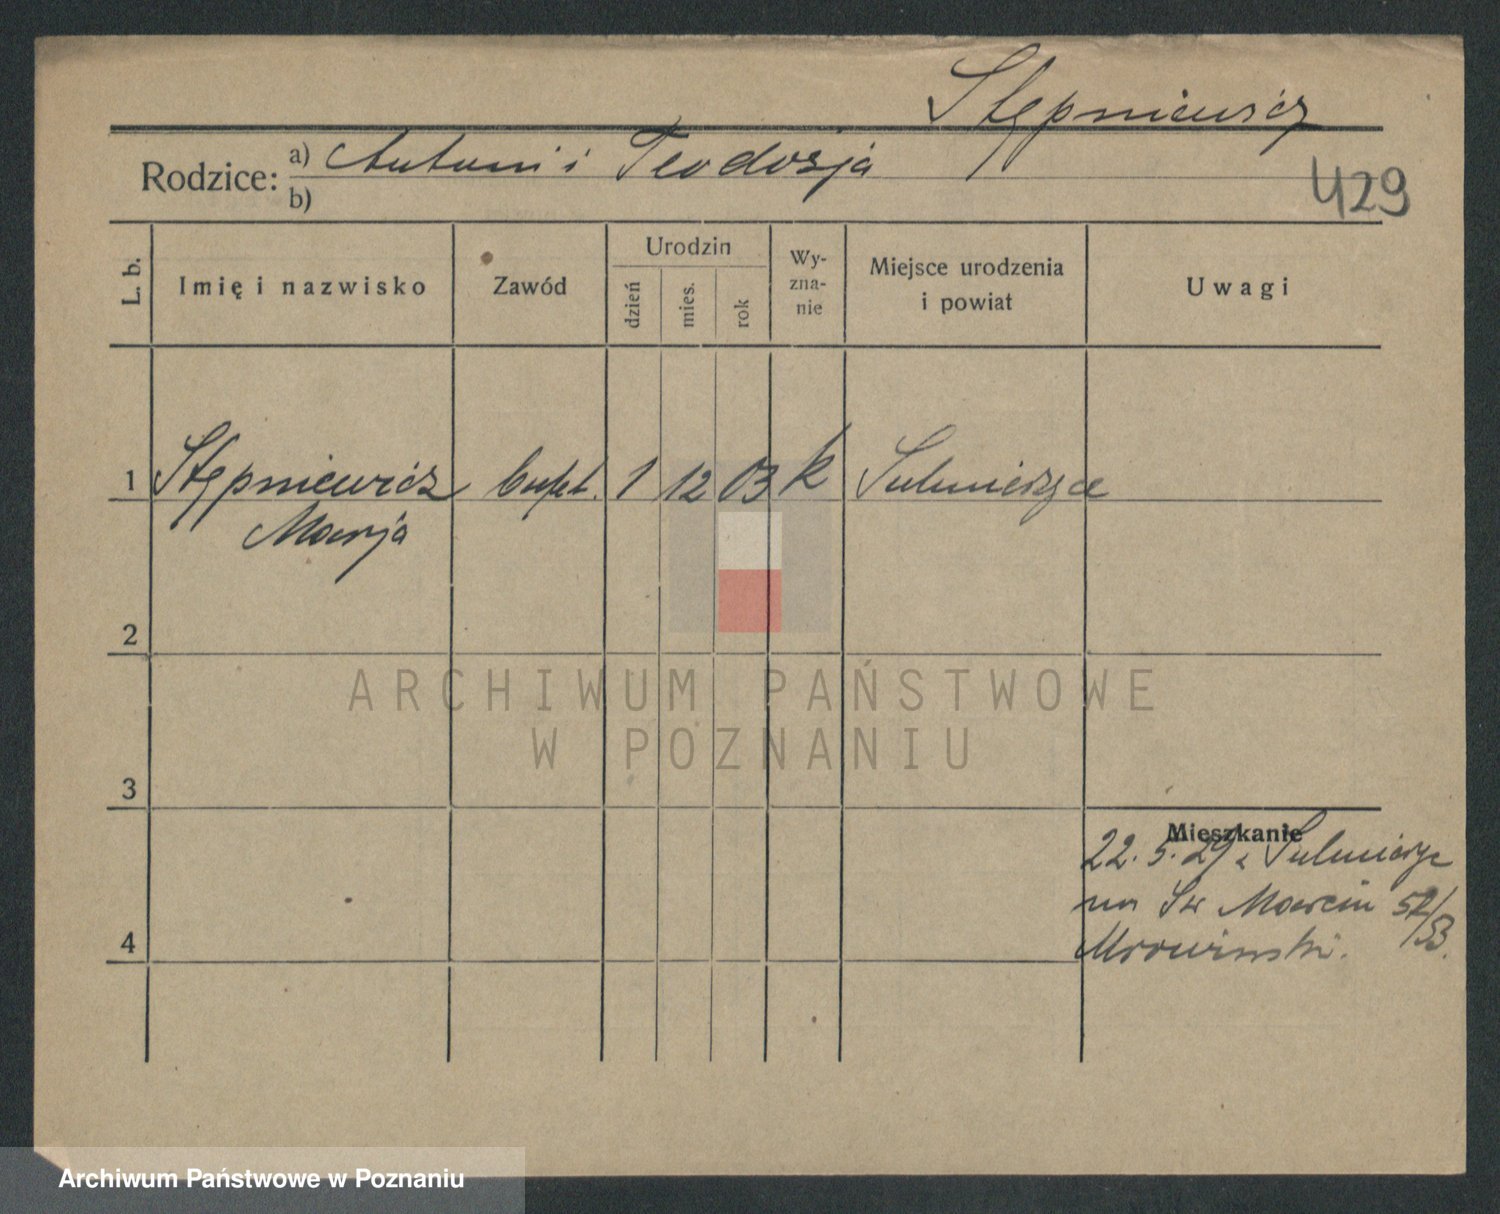 Stępniewicz
Rodzice: a) Antoni i Teodozja
b)
429
L. b.
Imię i nazwisko
Zawód
Urodzin
dzień
mies.
rok
Wy-
zna-
nie
Miejsce urodzenia
i powiat
Uwagi
1 Stępniewicz bufet. 1 12 03 k Sulmierzyce
Marja
2
3
4
Mieszkanie
22. 5. 29 z Sulmierzyc
na Św Marcin 52/53.
Mrowiński.
ARCHIWUM PAŃSTWOWE
W POZNANIU
Archiwum Państwowe w Poznaniu